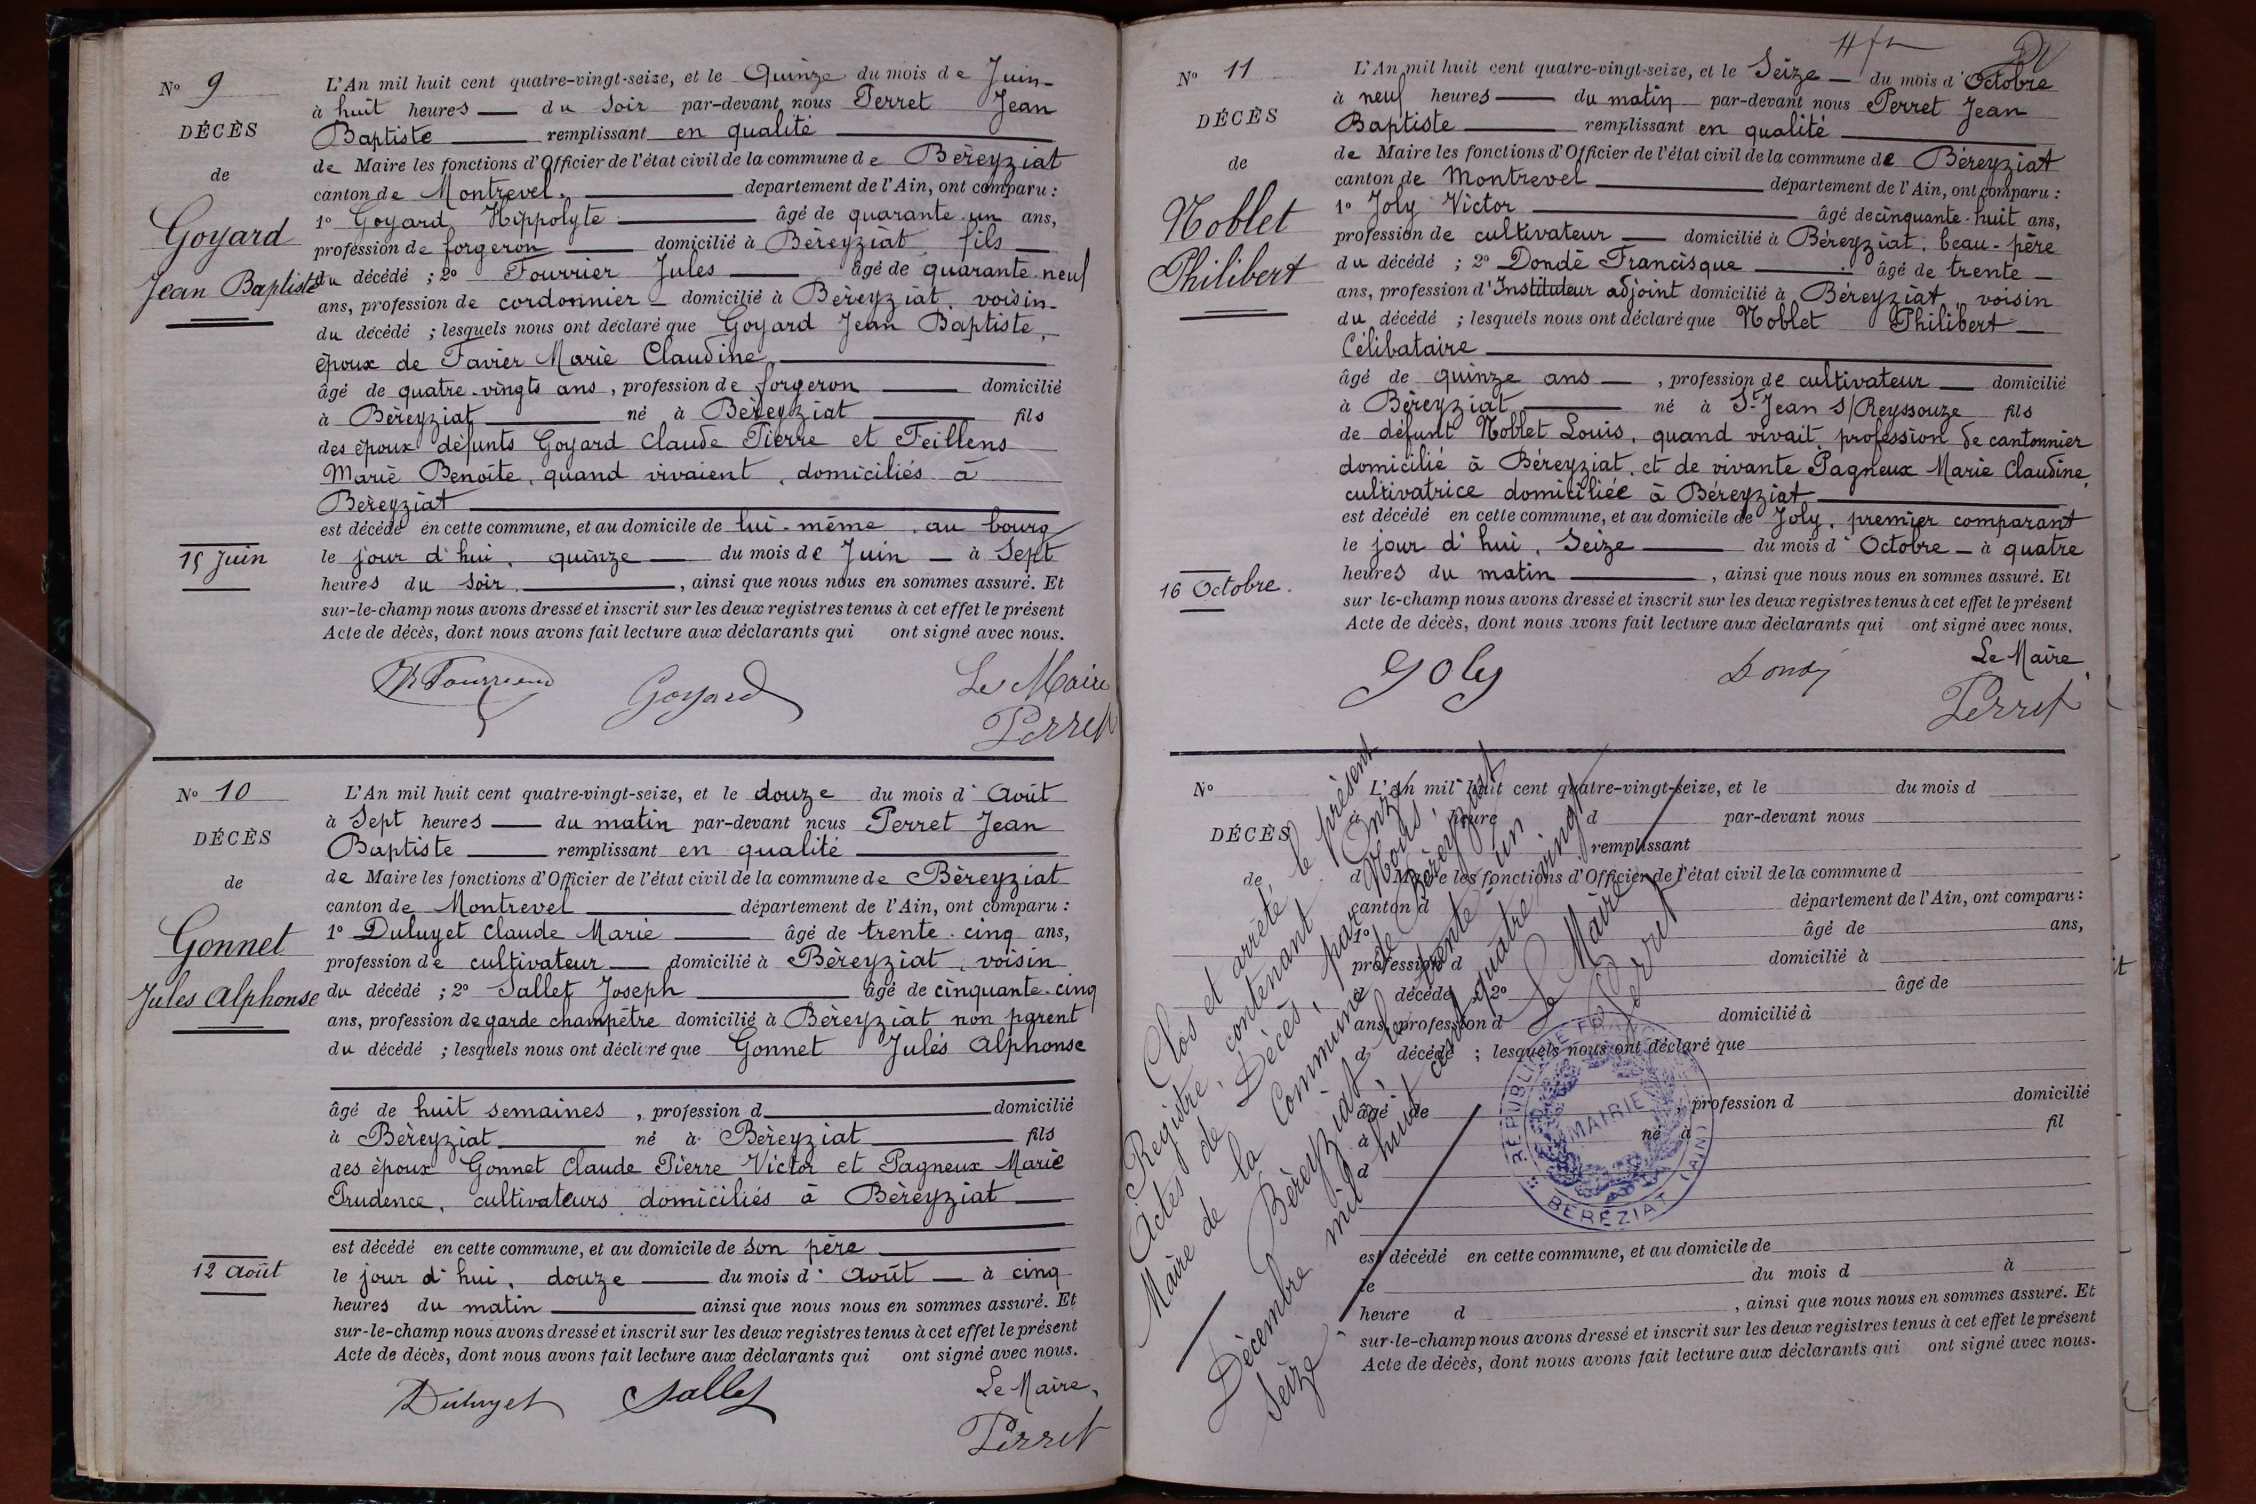 Nº 9
DÉCÈS
de
Goyard
Jean Baptiste
15 Juin
L'An mil huit cent quatre-vingt-seize, et le Quinze du mois de Juin
à huit heures du soir par-devant nous Perret Jean
Baptiste remplissant en qualité
de Maire les fonctions d'Officier de l'état civil de la commune de Béreyziat
canton de Montrevel département de l'Ain, ont comparu :
1º Goyard Hippolyte âgé de quarante-un ans,
profession de forgeron domicilié à Béreyziat, fils
du décédé ; 2º Fourrier Jules âgé de quarante-neuf
ans, profession de cordonnier domicilié à Béreyziat, voisin
du décédé ; lesquels nous ont déclaré que Goyard Jean Baptiste,
époux de Favier Marie Claudine,
âgé de quatre-vingts ans, profession de forgeron domicilié
à Béreyziat né à Béreyziat fils
des époux défunts Goyard Claude Pierre et Feillens
Marie Benoite, quand vivaient, domiciliés à
Béreyziat
est décédé en cette commune, et au domicile de lui-même, au bourg
le jour d'hui, quinze du mois de Juin à Sept
heures du soir, ainsi que nous nous en sommes assuré. Et
sur-le-champ nous avons dressé et inscrit sur les deux registres tenus à cet effet le présent
Acte de décès, dont nous avons fait lecture aux déclarants qui ont signé avec nous.
Goyard
Le Maire
Perret
Nº 10
DÉCÈS
de
Gonnet
Jules Alphonse
12 Août
L'An mil huit cent quatre-vingt-seize, et le douze du mois d'Août
à Sept heures du matin par-devant nous Perret Jean
Baptiste remplissant en qualité
de Maire les fonctions d'Officier de l'état civil de la commune de Béreyziat
canton de Montrevel département de l'Ain, ont comparu :
1º Duluyet Claude Marie âgé de trente-cinq ans,
profession de cultivateur domicilié à Béreyziat, voisin
du décédé ; 2º Sallet Joseph âgé de cinquante-cinq
ans, profession de garde champêtre domicilié à Béreyziat non parent
du décédé ; lesquels nous ont déclaré que Gonnet Jules Alphonse
âgé de huit semaines, profession d domicilié
à Béreyziat né à Béreyziat fils
des époux Gonnet Claude Pierre Victor et Pagneux Marie
Prudence, cultivateurs domiciliés à Béreyziat
est décédé en cette commune, et au domicile de son père
le jour d'hui, douze du mois d'Août à cinq
heures du matin ainsi que nous nous en sommes assuré. Et
sur-le-champ nous avons dressé et inscrit sur les deux registres tenus à cet effet le présent
Acte de décès, dont nous avons fait lecture aux déclarants qui ont signé avec nous.
Duluyet Sallet
Le Maire,
Perret
Nº 11
DÉCÈS
de
Noblet
Philibert
16 Octobre.
L'An mil huit cent quatre-vingt-seize, et le Seize du mois d'Octobre
à neuf heures du matin par-devant nous Perret Jean
Baptiste remplissant en qualité
de Maire les fonctions d'Officier de l'état civil de la commune de Béreyziat
canton de Montrevel département de l'Ain, ont comparu :
1º Joly Victor âgé de cinquante-huit ans,
profession de cultivateur domicilié à Béreyziat, beau-père
du décédé ; 2º Dondé Francisque âgé de trente
ans, profession d'Instituteur adjoint domicilié à Béreyziat, voisin
du décédé ; lesquels nous ont déclaré que Noblet Philibert
Célibataire
âgé de quinze ans, profession de cultivateur domicilié
à Béreyziat né à St-Jean s/Reyssouze fils
de défunt Noblet Louis, quand vivait, profession de cantonnier
domicilié à Béreyziat, et de vivante Pagneux Marie Claudine,
cultivatrice domiciliée à Béreyziat
est décédé en cette commune, et au domicile de Joly, premier comparant
le jour d'hui, Seize du mois d'Octobre à quatre
heures du matin, ainsi que nous nous en sommes assuré. Et
sur-le-champ nous avons dressé et inscrit sur les deux registres tenus à cet effet le présent
Acte de décès, dont nous avons fait lecture aux déclarants qui ont signé avec nous.
Joly Dondé
Le Maire,
Perret
Nº
DÉCÈS
de
L'An mil huit cent quatre-vingt-seize, et le du mois d
à heure d par-devant nous
remplissant
d Maire les fonctions d'Officier de l'état civil de la commune d
canton d département de l'Ain, ont comparu :
1º âgé de ans,
profession d domicilié à
d décédé ; 2º âgé de
ans, profession d domicilié à
d décédé ; lesquels nous ont déclaré que
âgé de , profession d domicilié
à né à fil
d
est décédé en cette commune, et au domicile de
le du mois d à
heure d , ainsi que nous nous en sommes assuré. Et
sur-le-champ nous avons dressé et inscrit sur les deux registres tenus à cet effet le présent
Acte de décès, dont nous avons fait lecture aux déclarants qui ont signé avec nous.
Clos et arrêté le présent
Registre, contenant Onze
Actes de Décès, par Nous,
Maire de la Commune de Béreyziat
Béreyziat le trente un
Décembre mil huit cent quatre vingt
Seize
Le Maire
Perret
RÉPUBLIQUE FRANÇAISE
MAIRIE
BÉRÉZIAT (AIN)